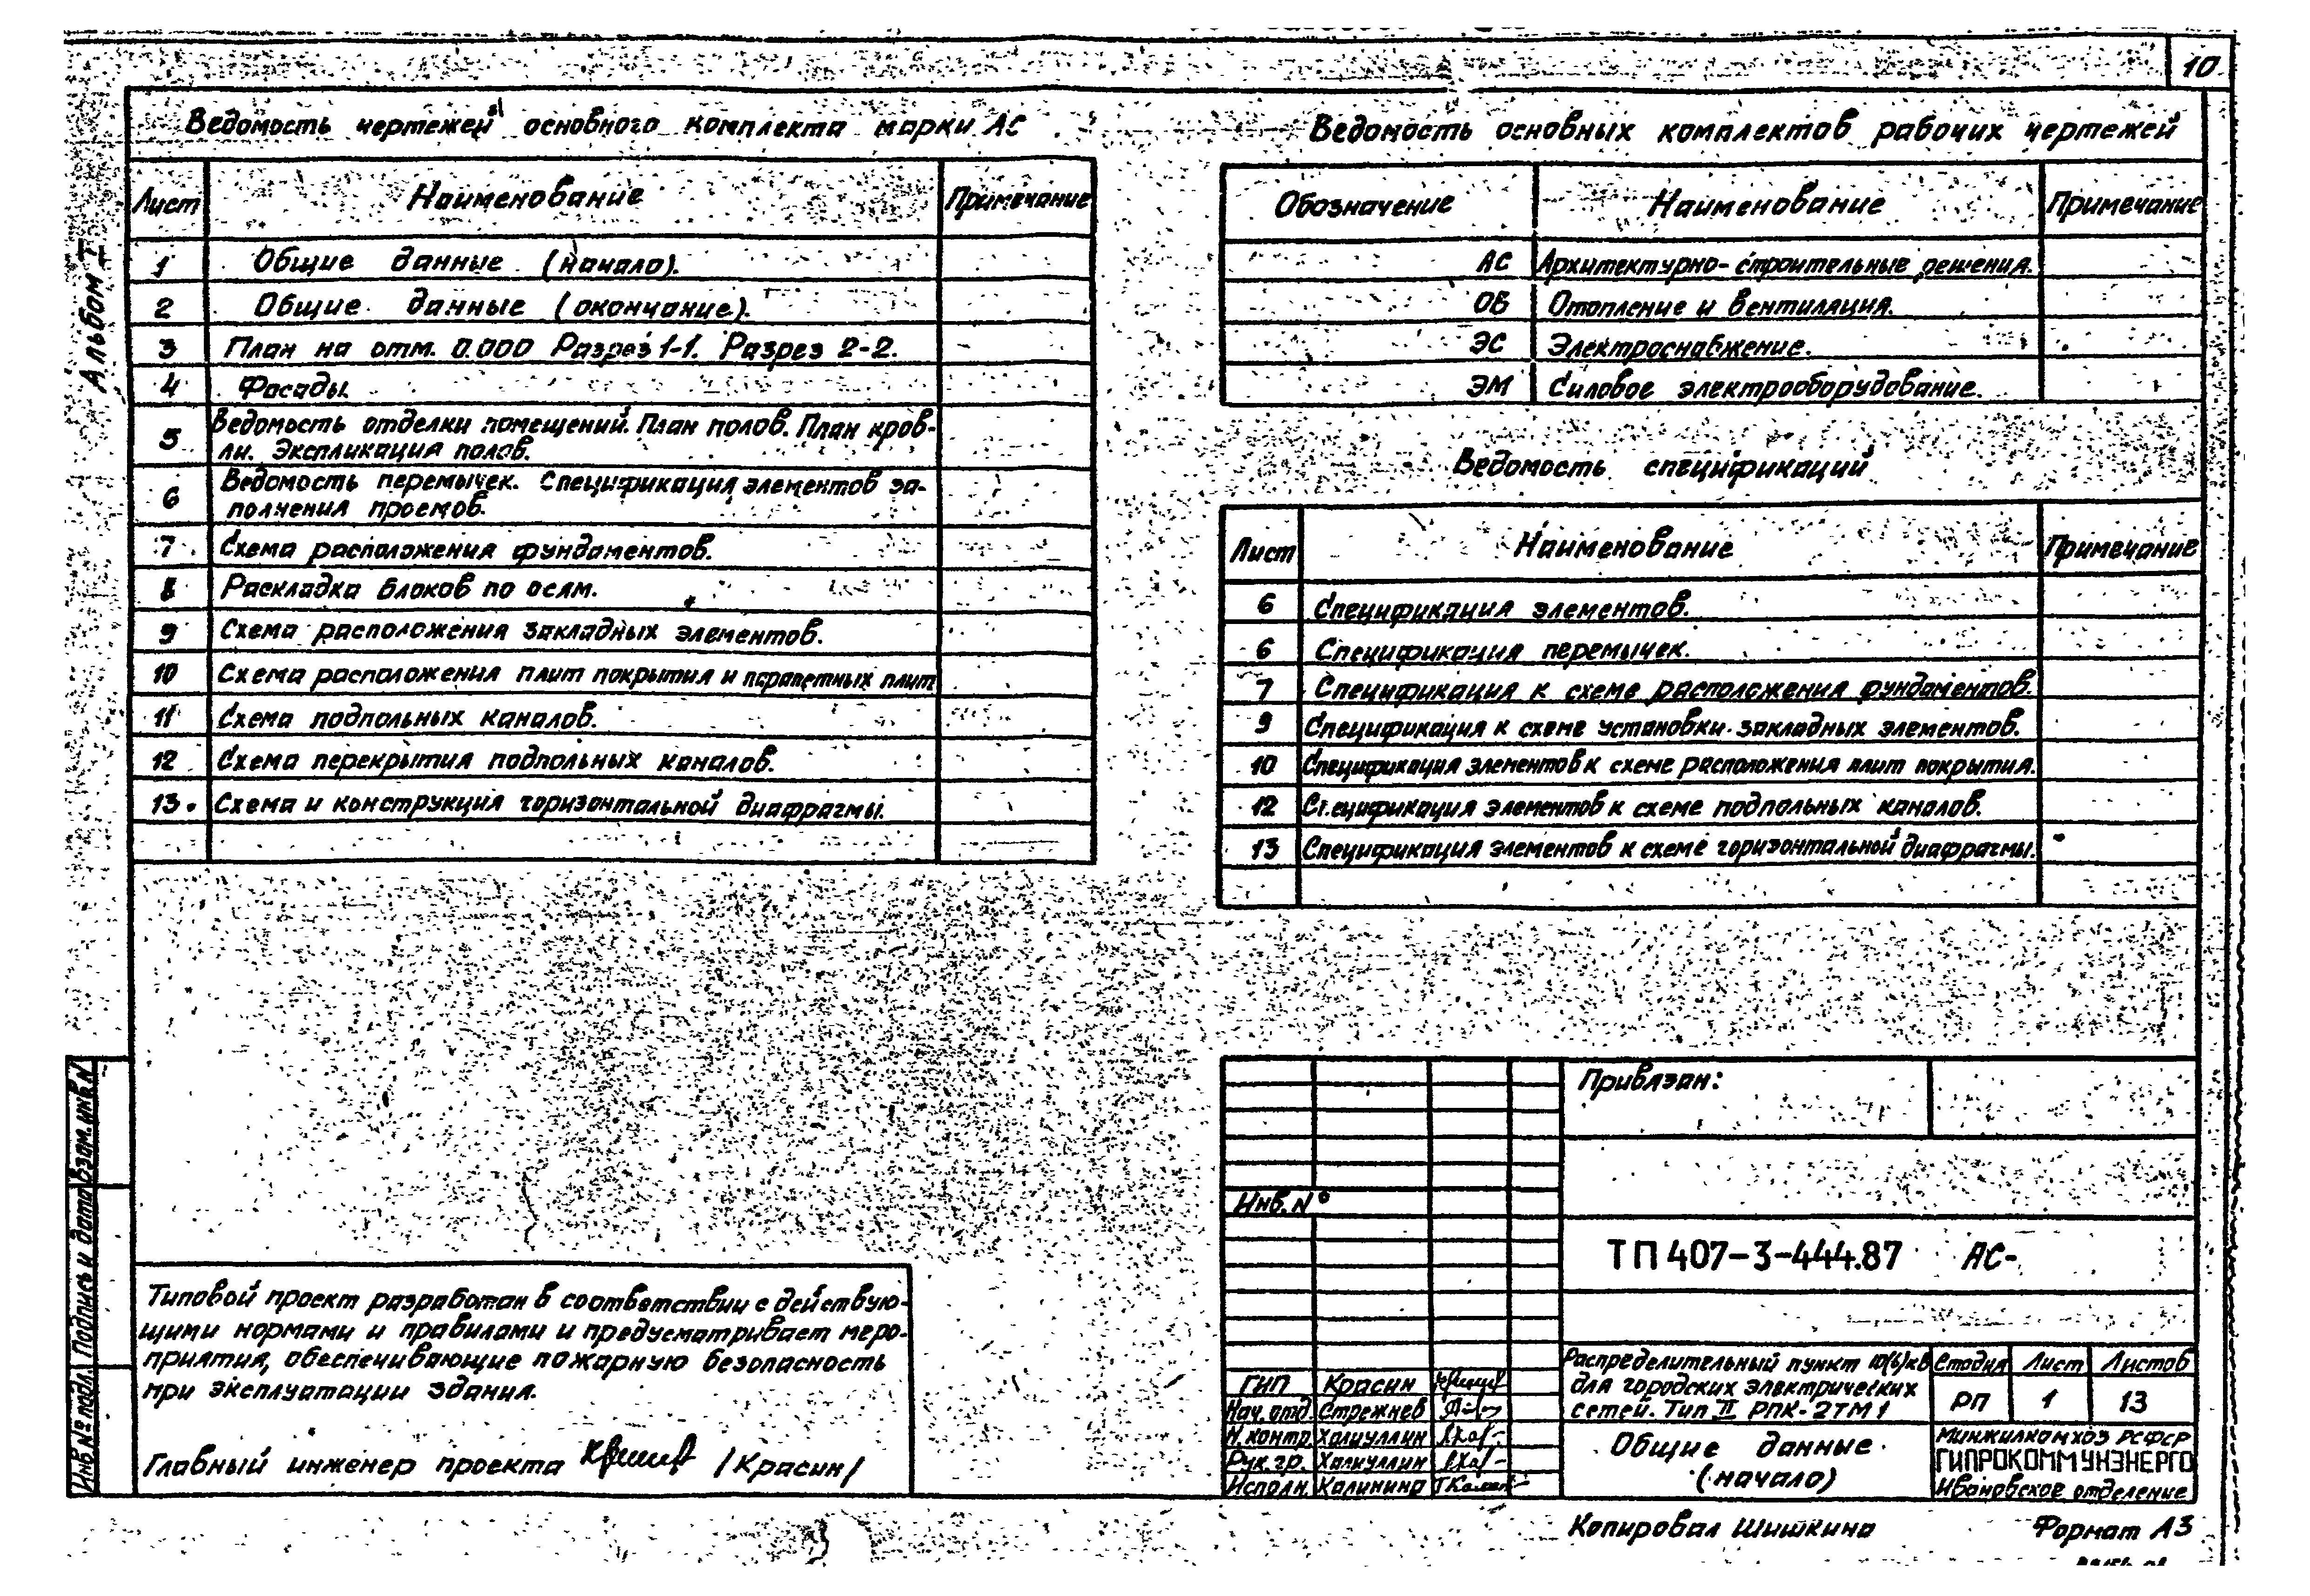 10
Альбом I
Ведомость чертежей основного комплекта марки АС
Лист Наименование Примечание
1 Общие данные (начало).
2 Общие данные (окончание).
3 План на отм. 0.000 Разрез 1-1. Разрез 2-2.
4 Фасады.
5 Ведомость отделки помещений. План полов. План кров-
ли. Экспликация полов.
6 Ведомость перемычек. Спецификация элементов за-
полнения проемов.
7 Схема расположения фундаментов.
8 Раскладка блоков по осям.
9 Схема расположения закладных элементов.
10 Схема расположения плит покрытия и парапетных плит
11 Схема подпольных каналов.
12 Схема перекрытия подпольных каналов.
13 Схема и конструкция горизонтальной диафрагмы.
Ведомость основных комплектов рабочих чертежей
Обозначение Наименование Примечание
АС Архитектурно-строительные решения.
ОВ Отопление и вентиляция.
ЭС Электроснабжение.
ЭМ Силовое электрооборудование.
Ведомость спецификаций
Лист Наименование Примечание
6 Спецификация элементов.
6 Спецификация перемычек.
7 Спецификация к схеме расположения фундаментов.
9 Спецификация к схеме установки закладных элементов.
10 Спецификация элементов к схеме расположения плит покрытия.
12 Спецификация элементов к схеме подпольных каналов.
13 Спецификация элементов к схеме горизонтальной диафрагмы.
Типовой проект разработан в соответствии с действую-
щими нормами и правилами и предусматривает меро-
приятия, обеспечивающие пожарную безопасность
при эксплуатации здания.
Главный инженер проекта /Красин/
Инв. № подл. Подпись и дата Взам. инв. N
Привязан:
Инв. N°
ТП 407-3-444.87 АС-
ГИП Красин
Нач. отд. Стрежнев
Н. контр. Халиуллин
Рук. гр. Халиуллин
Исполн. Калинина
Распределительный пункт 10(6)кВ
для городских электрических
сетей. Тип II РПК-2ТМ1
Стадия Лист Листов
РП 1 13
Общие данные
(начало)
Минжилкомхоз РСФСР
ГИПРОКОММУНЭНЕРГО
Ивановское отделение
Копировал Шишкина Формат А3